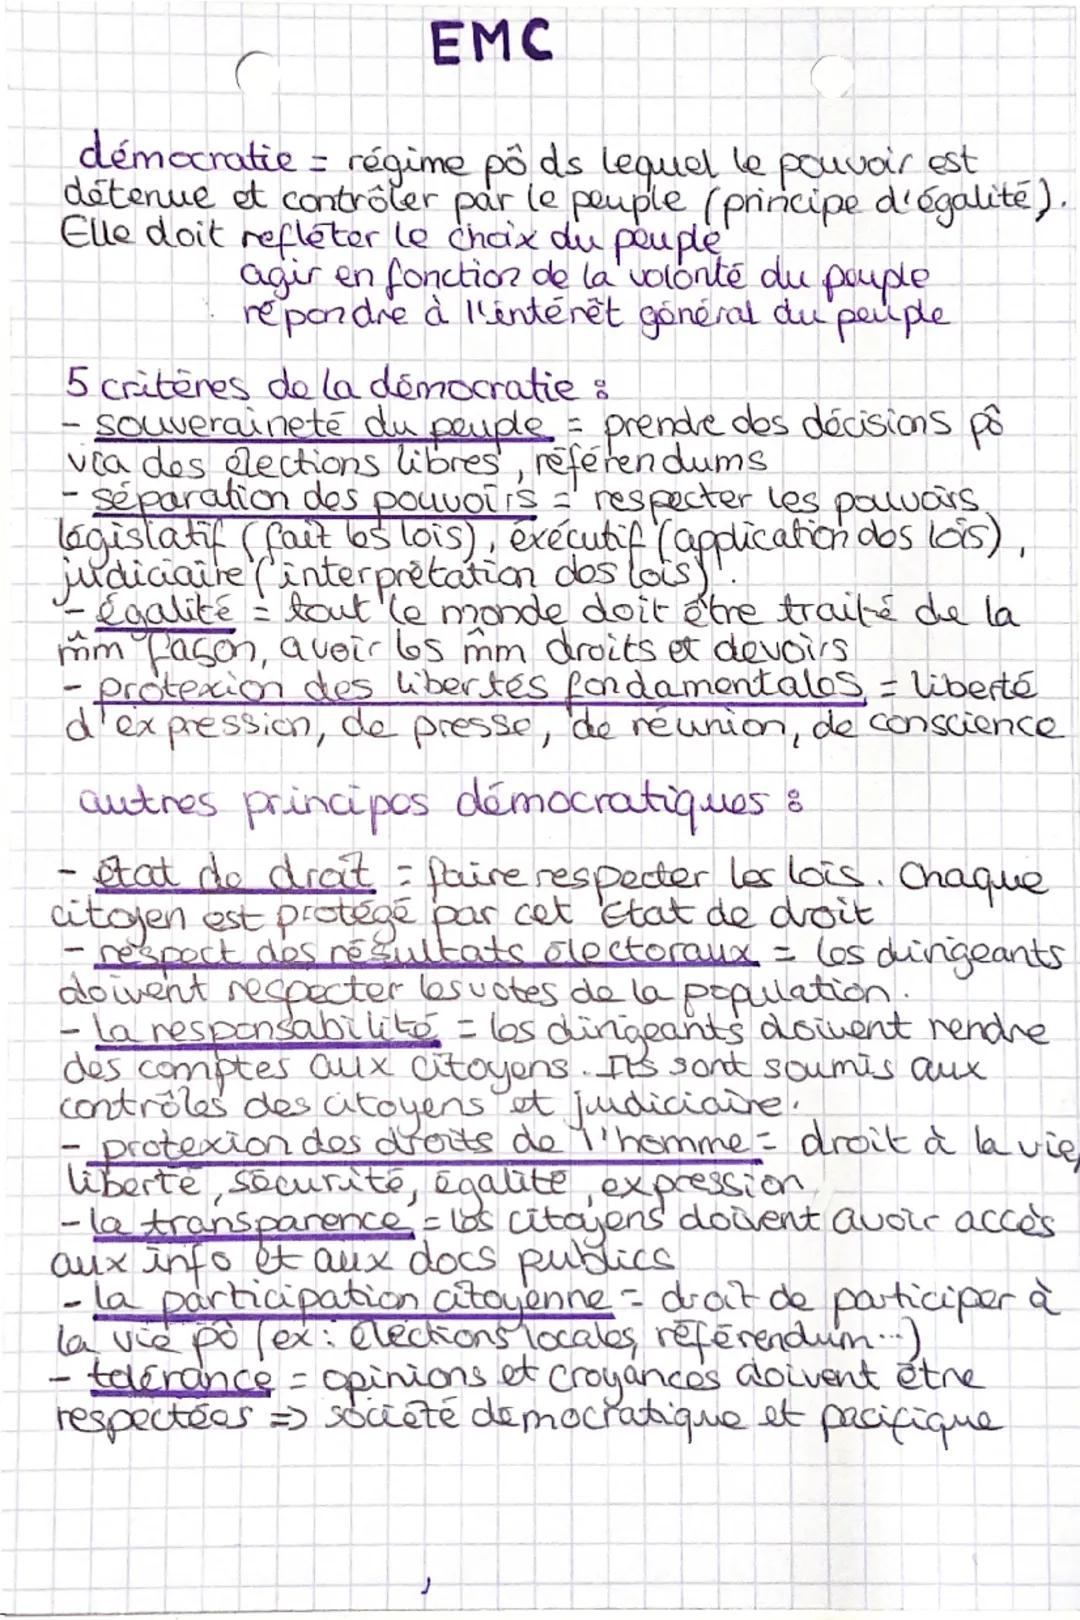 EMC
démocratie = régime pô ds lequel le pouvoir est
détenue et contrôler par le peuple (principe d'égalité).
Elle doit refléter le choix du peuple
agir en fonction de la volonté du peuple
répondre à l'intérêt général du peuple
5 critères de la démocratie :
- souveraineté du peuple = prendre des décisions pô
via des élections libres, référendums
- séparation des pouvoirs = respecter les pouvoirs
législatif (fait les lois), éxécutif (application des lois),
judiciaire (interprétation des lois).
- égalité = tout le monde doit être traité de la
m̂m façon, avoir les m̂m droits et devoirs
- protexion des libertés fondamentales = liberté
d'expression, de presse, de réunion, de conscience
autres principes démocratiques :
- état de droit = faire respecter les lois. Chaque
citoyen est protégé par cet État de droit
- respect des résultats électoraux = les dirigeants
doivent respecter les votes de la population.
- la responsabilité = les dirigeants doivent rendre
des comptes aux citoyens. Ils sont soumis aux
contrôles des citoyens et judiciaire.
- protexion des droits de l'homme = droit à la vie,
liberté, sécurité, égalité, expression
- la transparence = les citoyens doivent avoir accès
aux info et aux docs publics
- la participation citoyenne = droit de participer à
la vie pô (ex : élections locales, référendum...)
- tolérance = opinions et croyances doivent être
respectées => société démocratique et pacifique